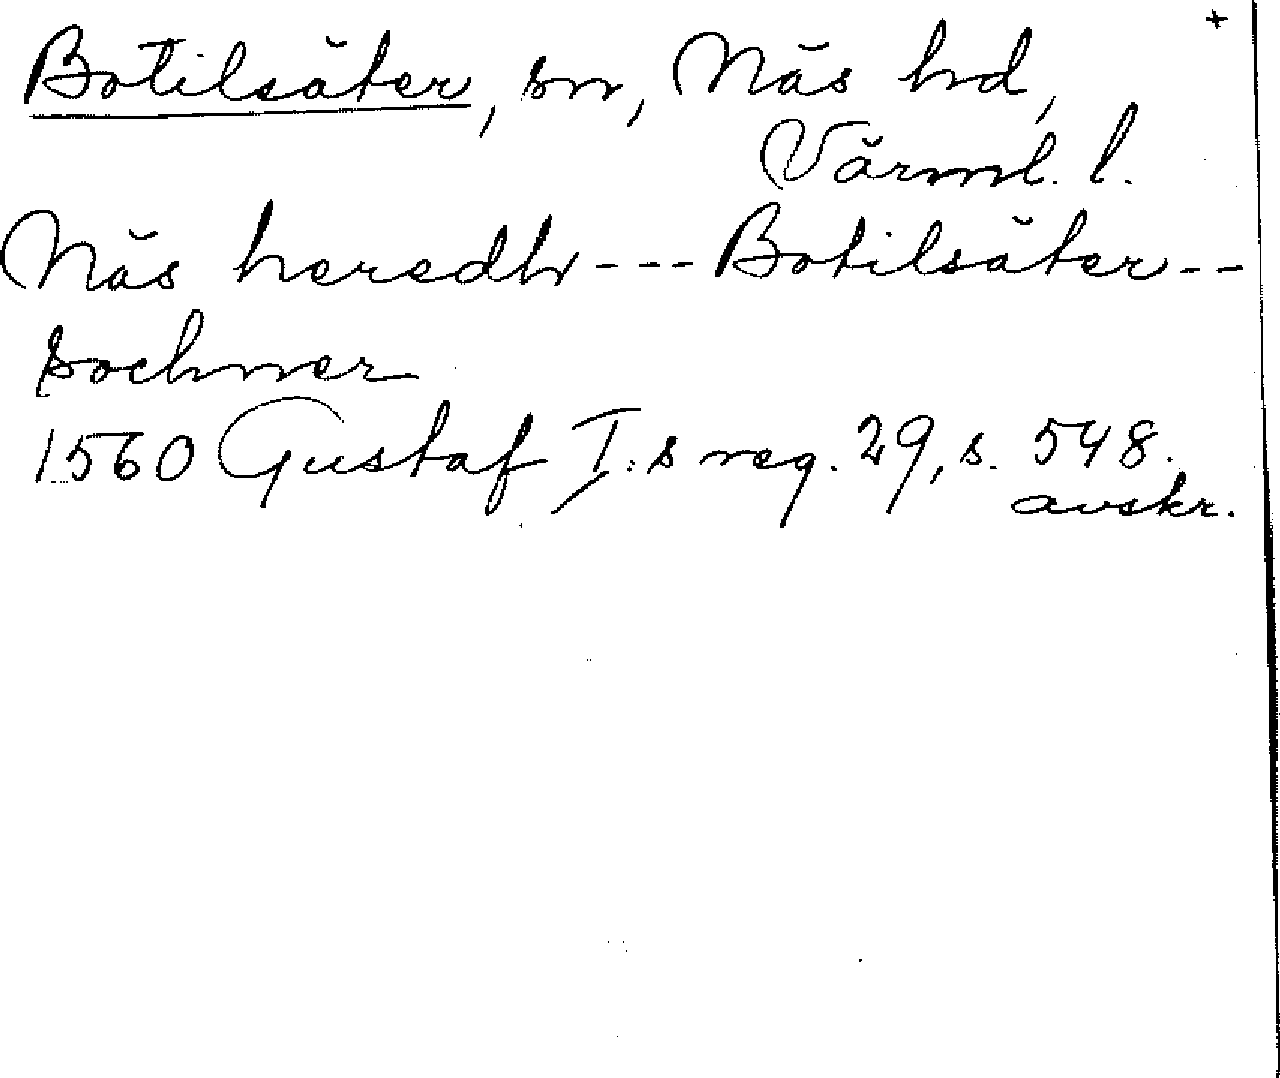 +
Botilsäter, sn, Näs hd,
Värml. l.
Näs heredh --- Botilsäter --
sochner
1560 Gustaf I:s reg. 29, s. 548.
avskr.